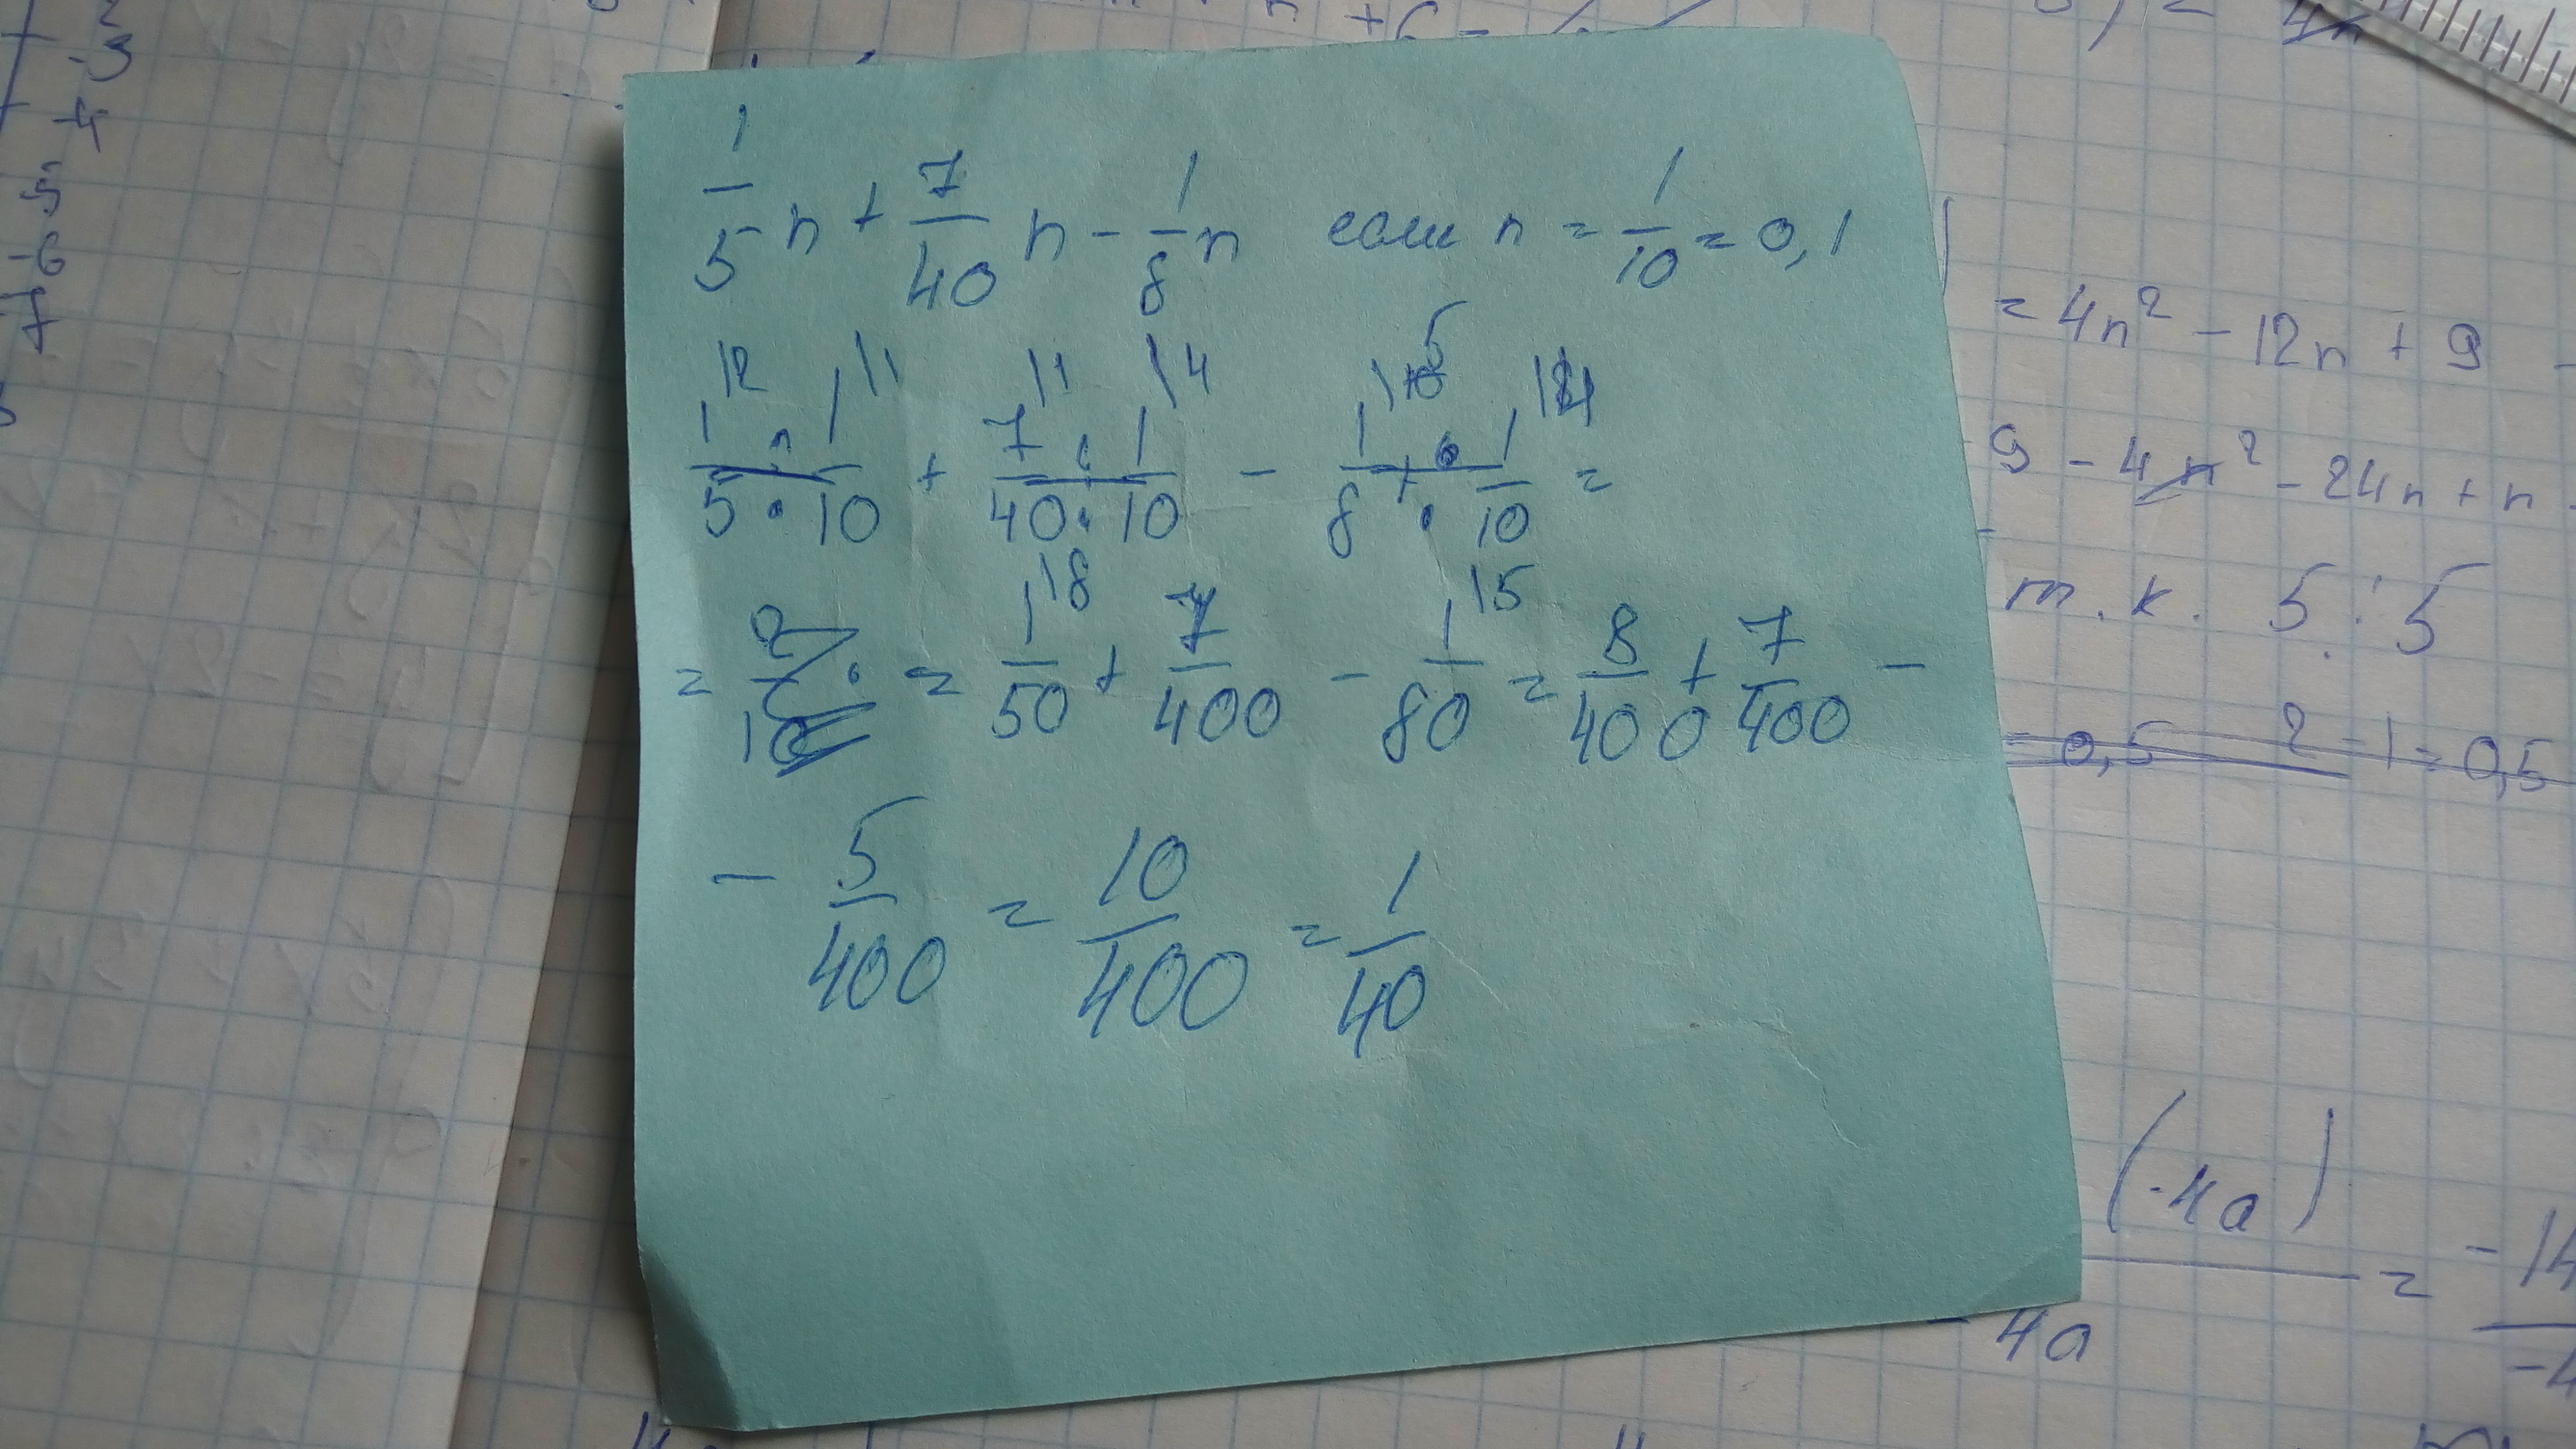 1/5 n + 7/40 n - 1/8 n если n = 1/10 = 0,1
1/5 · 1/10 + 7/40 · 1/10 - 1/8 · 1/10 =
= = 1/50 + 7/400 - 1/80 = 8/400 + 7/400 -
- 5/400 = 10/400 = 1/40
= 4n² - 12n + 9
9 - 4n² - 24n + n
т.к. 5 : 5
= 0,5 2 - 1 = 0,5
(-4a)
- 4a
=
-3
-4
-5
-6
-7